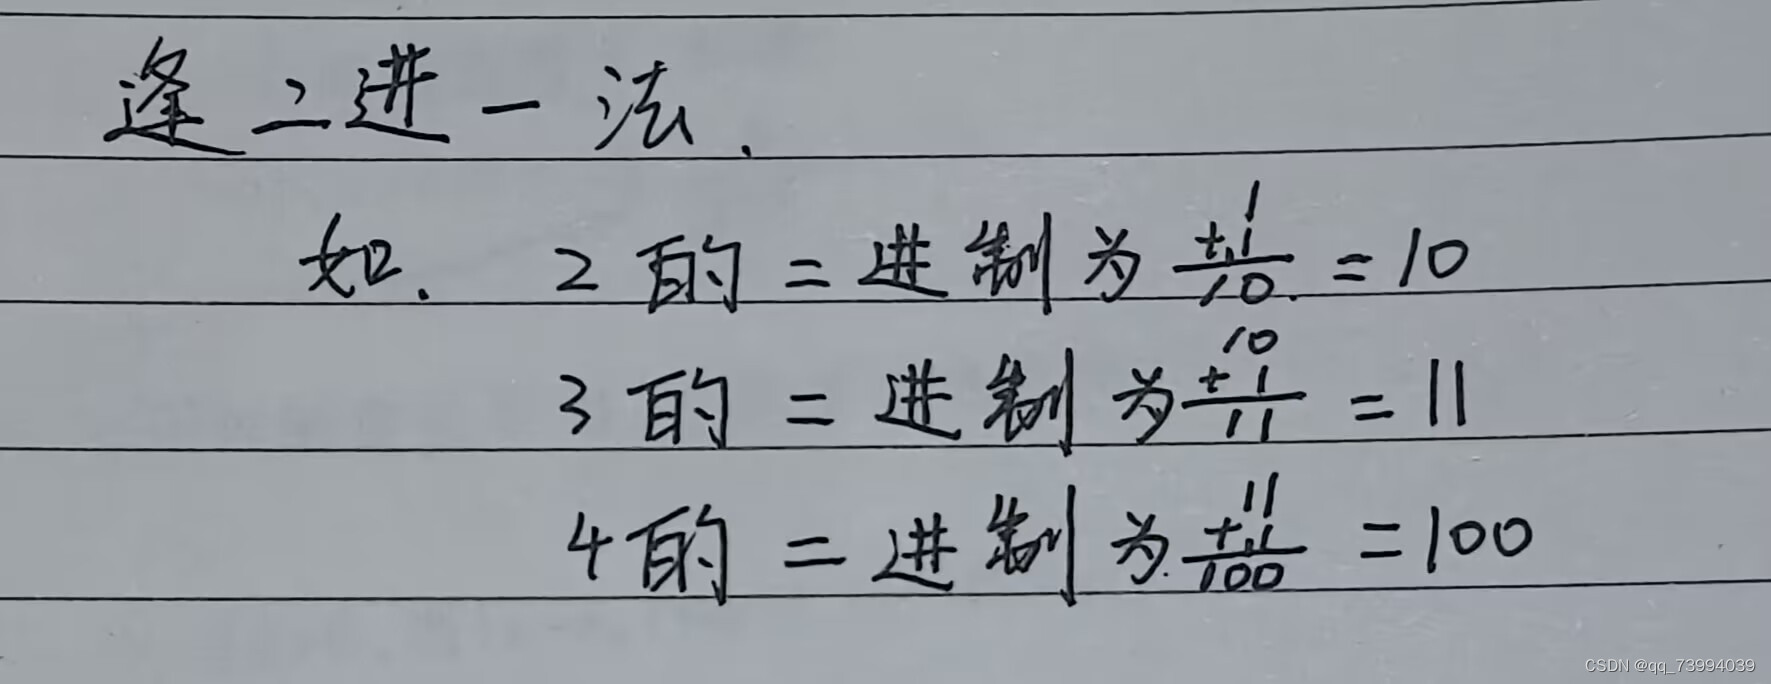 逢二进一法.
如. 2的二进制为 1 +1 10 = 10
3的二进制为 10 +1 11 = 11
4的二进制为 11 +1 100 = 100
CSDN @qq_73994039